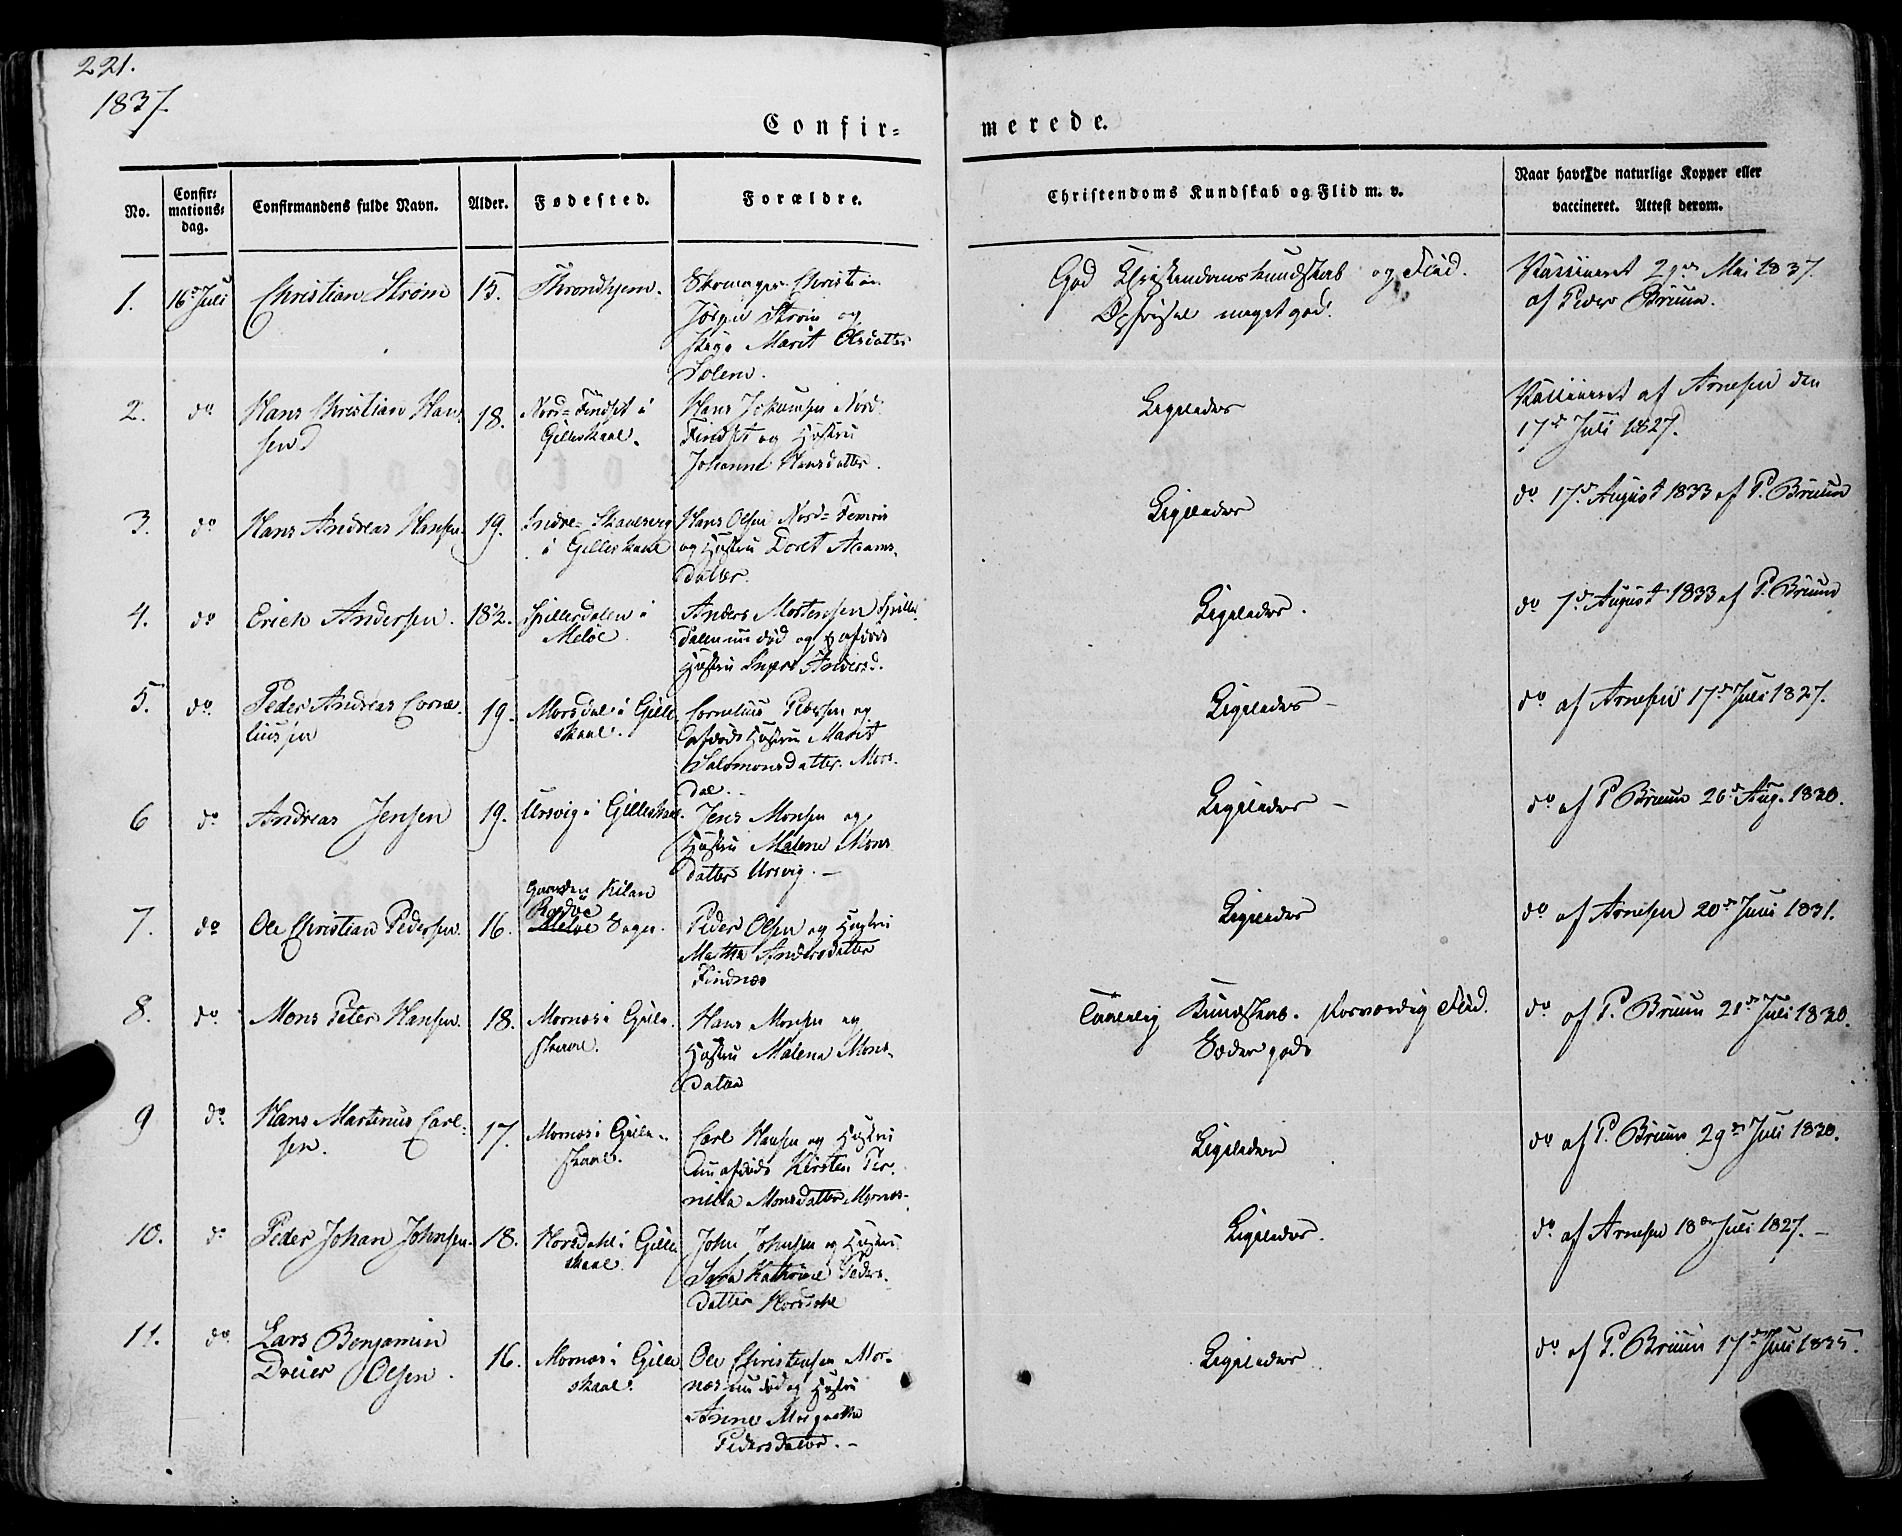 221.
1837.
Confir=
merede.
No.
Confir=
mations=
dag.
Confirmandens fulde Navn.
Alder.
Fødested.
Forældre.
Christendoms Kundskab og Flid m. v.
Naar havt de naturlige Kopper eller
vaccineret. Attest derom.
1.
16de Juli
Christian Strøm
15.
Throndhjem.
Skomager Christian
Jørgen Strøm og
Marit Olsdatter
Solem.
God Christendomskundskab og Flid.
Opførsel meget god.
Vaccineret 29de Mai 1837.
af Peder Bruun.
2.
do
Hans Christian Han
sen
18.
Nord=Findset i
Gilleskaal.
Hans Nord
Findset og Hustru
Johanna Hansdatter.
Ligeledes
Vaccineret af Arnesen den
17de Juli 1827.
3.
do
Hans Andreas Hansen
19.
Indre=
i Gilleskaal
Hans Olsen Nord=
og Hustru Doret Adams
datter.
Ligeledes
do 17de August 1833 af P. Bruun
4.
do
Erich Andersen.
18½.
Spillerdalen i
Meløe
Anders Mortensen Spiller
dalen nu død og afdøde
Hustru Anders d.
Ligeledes.
do 7de August 1833 af P. Bruun
5.
do
Peder Andreas Corne
liussen
19.
Morsdal i Gille
skaal.
Cornelius Pedersen og
afdøde Hustru Marit
Salomonsdatter Mors
dal.
Ligeledes
do af Arnesen 17de Juli 1827.
6
do
Andreas Jensen
19.
Ursvig i Gilleskaal.
Jens Monsen og
Hustru Malene Mons
datter Ursvig.
Ligeledes
do af P Bruun 26de Aug. 1830.
7.
do
Ole Christian Pedersen.
16.
Gaarden Kilan
Rødøe
Meløe Sogn.
Peder Olsen og Hustru
Martha Andersdatter
Findnæs
Ligeledes
do af Arnesen 20de Juni 1831.
8.
do
Mons Peter Hansen.
18.
Mornæs i Gille
skaal.
Hans Monsen og
Hustru Malena Mons
datter
Taalelig Kundskab. Flid.
Sæder gode
do af P. Bruun 21de Juli 1830.
9
do
Hans Martinus Carl
sen.
17.
Mornæs i Gille
skaal.
Carl Hansen og Hustru
nu afdøde Kirsten Per
nilla Monsdatter Mornæs
Ligeledes
do af P. Bruun 29de Juli 1830.
10.
do
Peder Johan Johnsen.
18.
Horsdahl i Gille
skaal.
John Johnsen og Hustru
Sara Kathrine Peders
datter Horsdahl
Ligeledes.
do af Arnesen 18de Juli 1827.
11.
do
Lars Benjamin
Dreier Olsen.
16.
Mornæs i Gille
skaal.
Ole Christensen Mor
næs nu død og Hustru
Anne Margrethe
Pedersdatter.
Ligeledes
do af P. Bruun 17de Juli 1835.